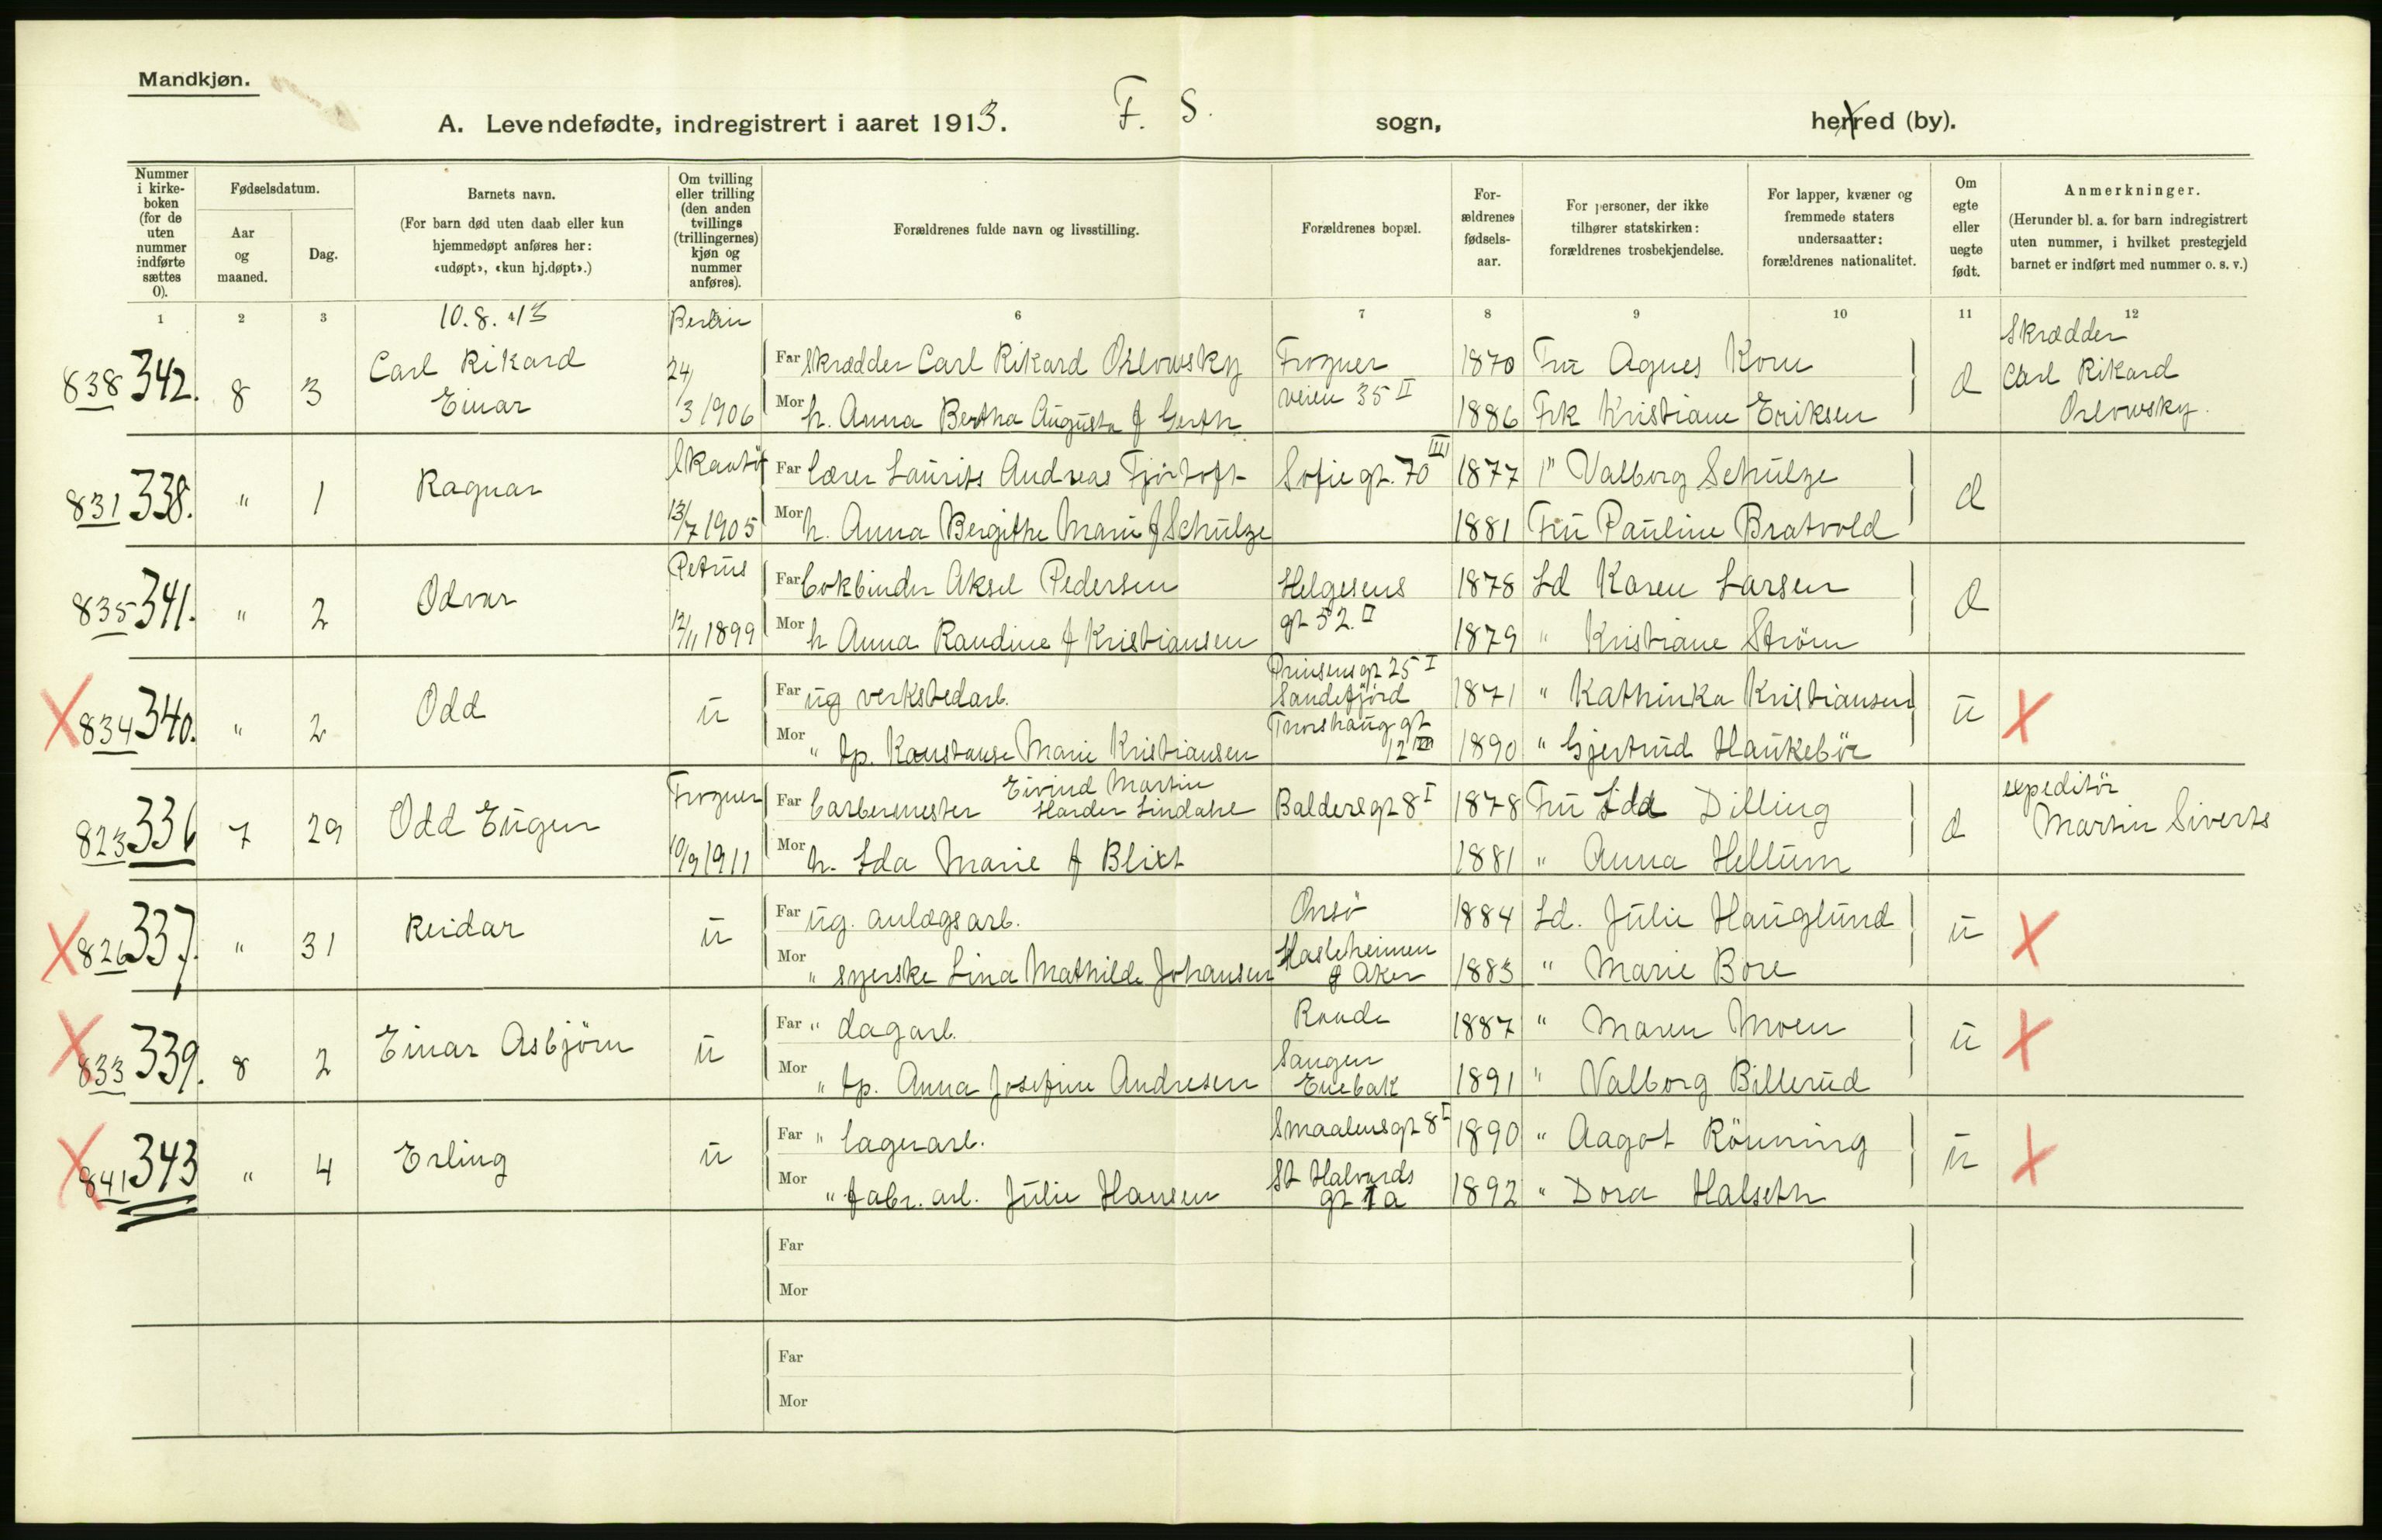 Mandkjøn.
A. Levendefødte, indregistrert i aaret 1913. F. S. sogn, herred (by).
Nummer i kirkeboken (for de uten nummer indførte sættes 0).
Fødselsdatum.
Aar og maaned.
Dag.
Barnets navn.
(For barn død uten daab eller kun hjemmedøpt anføres her: «udøpt», «kun hj.døpt».)
Om tvilling eller trilling (den anden tvillings (trillingernes) kjøn og nummer anføres).
Forældrenes fulde navn og livsstilling.
Forældrenes bopæl.
Forældrenes fødselsaar.
For personer, der ikke tilhører statskirken: forældrenes trosbekjendelse.
For lapper, kvæner og fremmede staters undersaatter: forældrenes nationalitet.
Om egte eller uegte født.
Anmerkninger.
(Herunder bl. a. for barn indregistrert uten nummer, i hvilket prestegjeld barnet er indført med nummer o. s. v.)
1 2 3 10.8.13 Berlin 6 7 8 9 10 11 12
838 342. 8 3 Carl Rikard Einar 24/3 1906
Far Skrædder Carl Rikard Orlowsky Frogner 1870 Fru Agnes Korn
Mor h. Anna Bertha Augusta f Gerth veien 35 II 1886 Frk Kristiane Eriksen
d Skrædder Carl Rikard Orlowsky.
831 338. " 1 Ragnar Skåntöf 13/7 1905
Far Lærer Laurits Andreas Fjørtoft Sofie gt. 70 III 1877 " Valborg Schulze
Mor h. Anna Bergithe Marie f Schulze 1881 Fru Pauline Bratvold
d
835 341. " 2 Odvar Petrus 12/11 1899
Far bokbinder Aksel Pedersen Helgesens 1878 Jd Karen Larsen
Mor h Anna Randine f Kristiansen gt 52. II 1879 " Kristiane Strøm
d
834 340. " 2 Odd u
Far ug verkstedarb. Prinsens gt 25 I Sandefjord 1871 " Kathinka Kristiansen
Mor " tp. Konstanse Marie Kristiansen Thorshaug gt 12 III 1890 " Gjertrud Haukebør
u
823 336 7 29 Odd Eugen Frogner 10/9 1911
Far barbermester Eivind Martin Harder Lindahl Balders gt 8 I 1878 Fru Ida Dilling
Mor h. Ida Marie f Blixt 1881 " Anna Hellum
d expeditör Martin Siverts
826 337. " 31 Reidar u
Far ug. anlægsarb. Onsö 1884 Jd. Julie Hauglund
Mor " syerske Lina Mathilde Johansen Hasleheimen Aker 1883 " Marie Bore
u
833 339. 8 2 Einar Asbjörn u
Far " dagarb. Raade 1887 " Maren Moen
Mor " tp. Anna Josefine Andresen Sangen Enebak 1891 " Valborg Billerud
u
841 343 " 4 Erling u
Far " lagerarb. Smaalens gt 8 I 1890 " Aagot Rönning
Mor " fabr. arb. Julie Hansen St Halvards gt 1 a 1892 " Dora Halseth
u
Far
Mor
Far
Mor